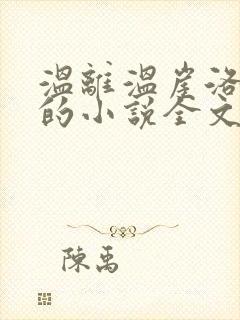 溫離溫崖洛
的小說全文
陳禹